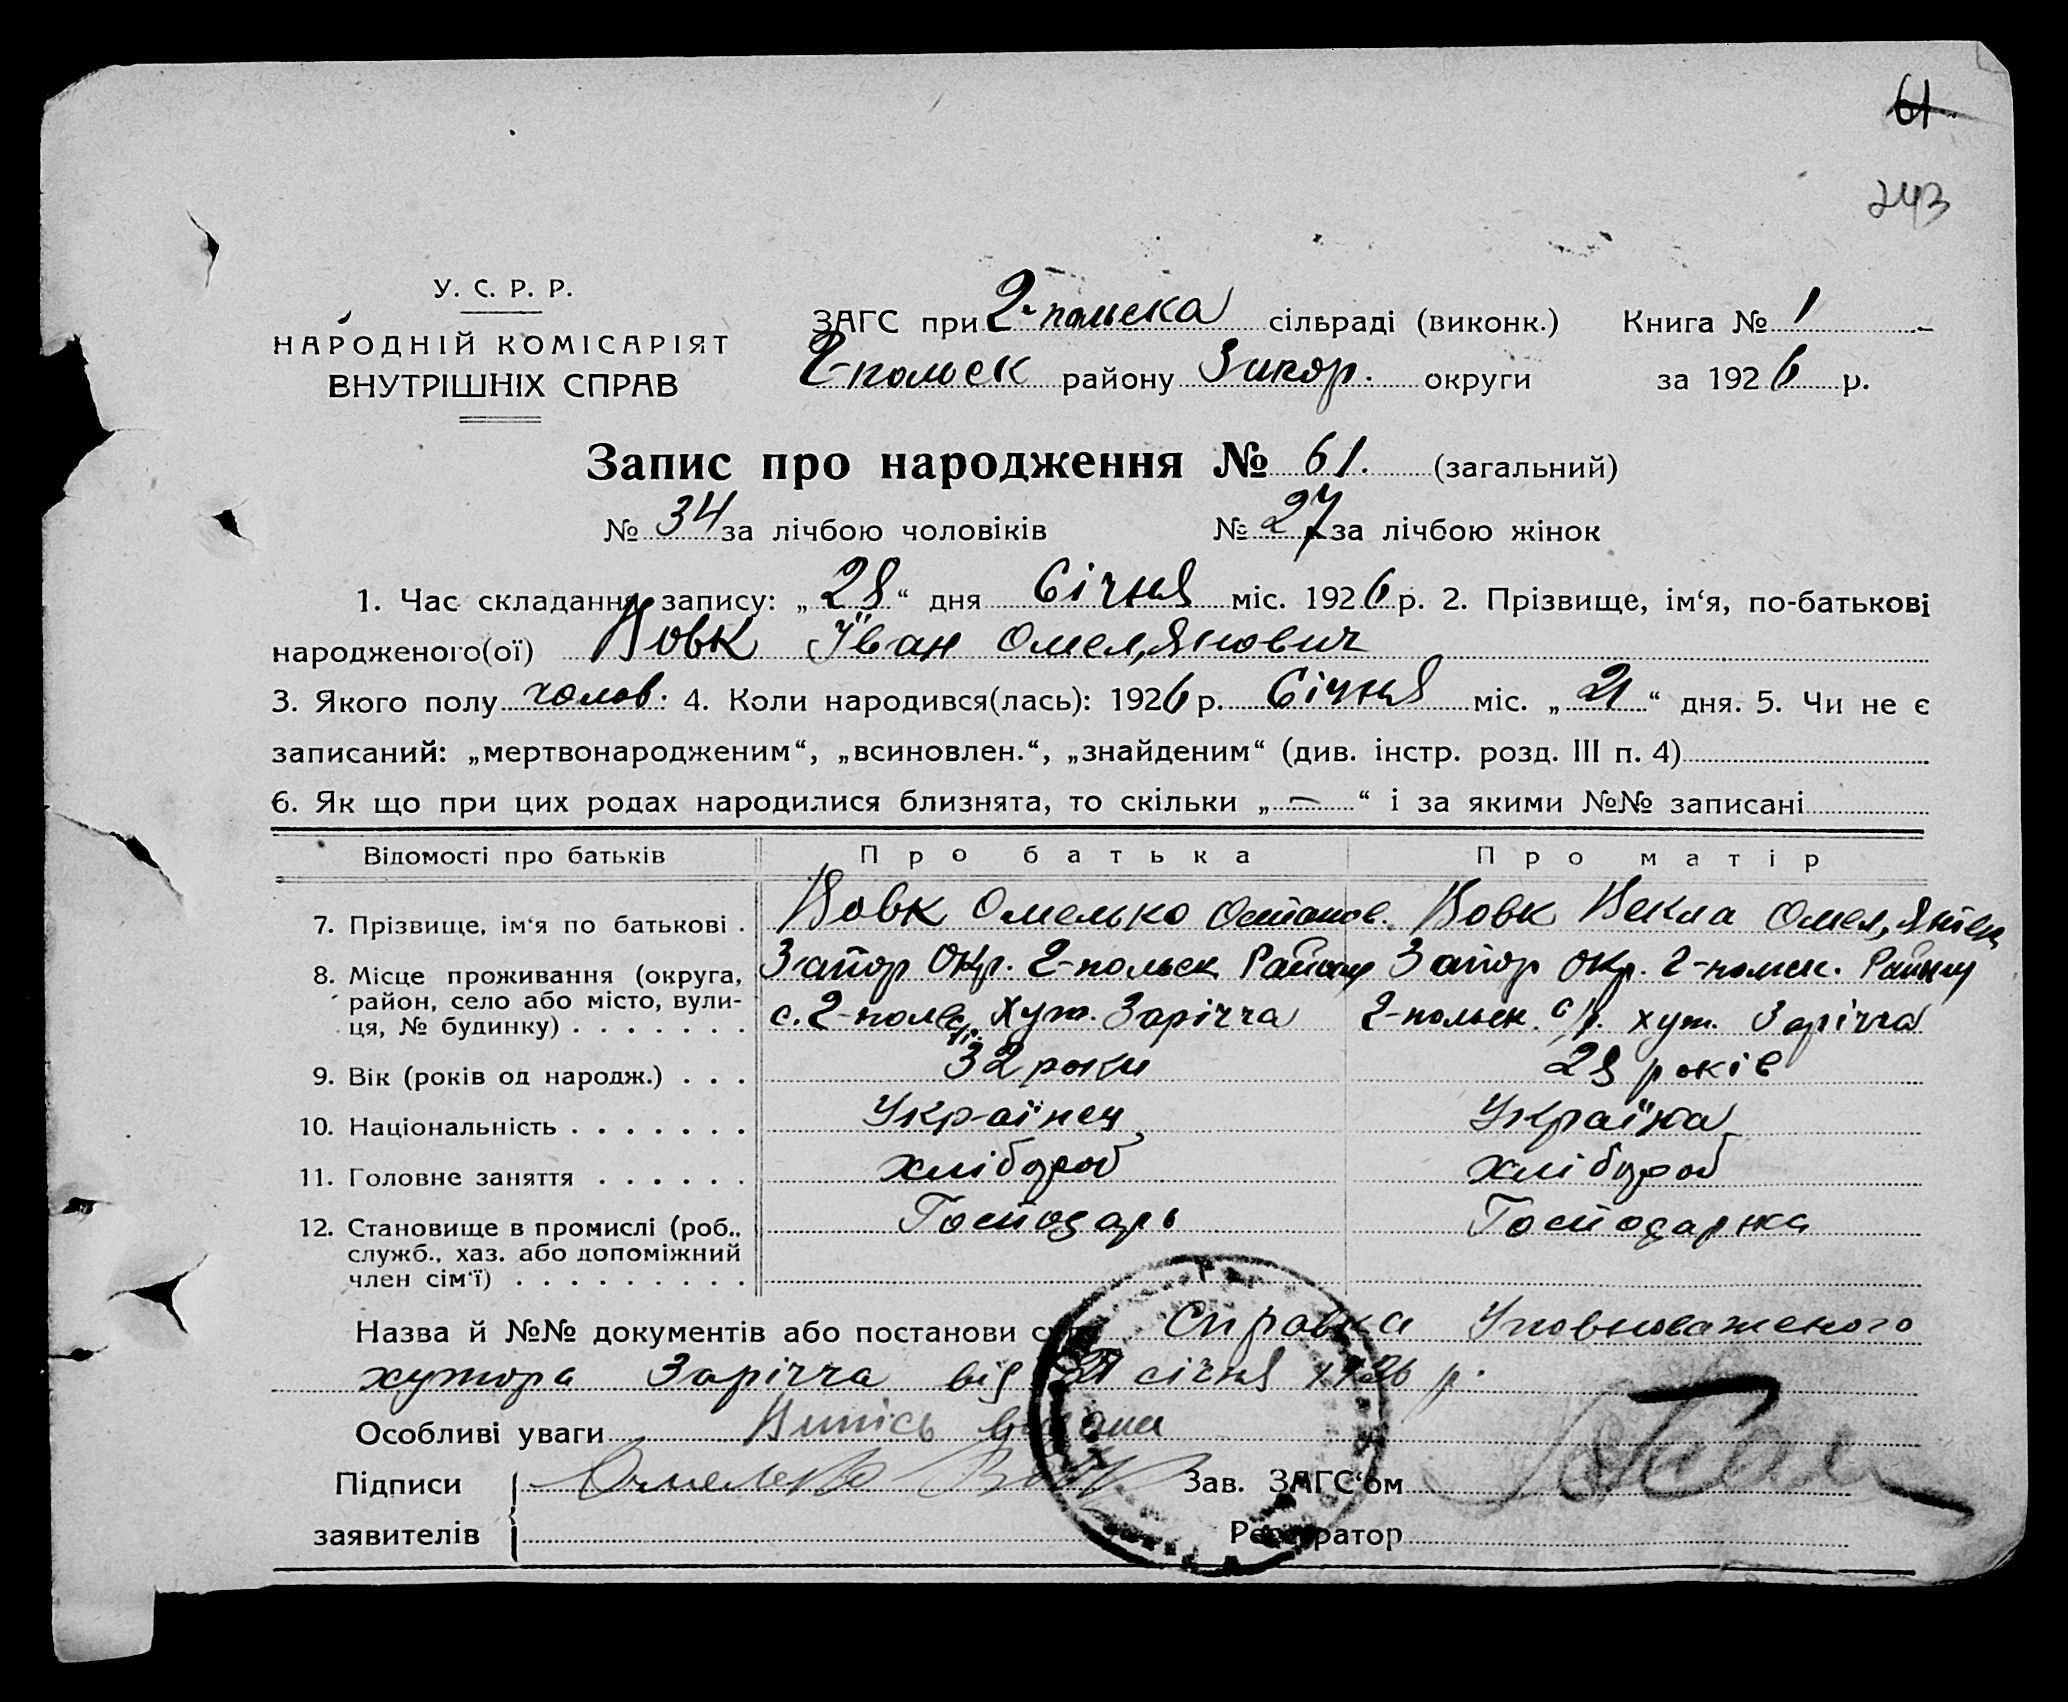 61
243
У. С. Р. Р.
НАРОДНІЙ КОМІСАРІЯТ
ВНУТРІШНІХ СПРАВ
ЗАГС при 2-польска сільраді (виконк.) Книга № 1
2-польск району Запор. округи за 1926 р.
Запис про народження № 61. (загальний)
№ 34 за лічбою чоловіків № 27 за лічбою жінок
1. Час складання запису: „28“ дня Січня міс. 1926 р. 2. Прізвище, ім‘я, по-батькові
народженого(ої) Вовк Їван Омел,янович
3. Якого полу чолов. 4. Коли народився(лась): 1926 р. Січня міс. „21“ дня. 5. Чи не є
записаний: „мертвонародженим“, „всиновлен.“, „знайденим“ (див. інстр. розд. III п. 4)
6. Як що при цих родах народилися близнята, то скільки „—“ і за якими №№ записані
Відомості про батьків Про батька Про матір
7. Прізвище, ім‘я по батькові . Вовк Омелько Остапов. Вовк Векла
8. Місце проживання (округа, район, село або місто, вулиця, № будинку) Запор Окр. 2-польск Району Запор Окр. 2-польск. Району
с. 2-полвс. Хут. Зарічча 2-польск. с/р. хут. Зарічча
9. Вік (років од народж.) . . . 32 роки 28 років
10. Національність . . . . . . . Українец Українка
11. Головне заняття . . . . . . хлібороб хлібороб
12. Становище в промислі (роб., служб., хаз. або допоміжний член сім‘ї) . . . . . . . . . Господарь Господарка
Назва й №№ документів або постанови суда Справка Уповноваженого
хутора Зарічча від січня 1926 р.
Особливі уваги Випісь видана
Підписи заявителів Омелько Вовк Зав. ЗАГС‘ом
Реєстратор